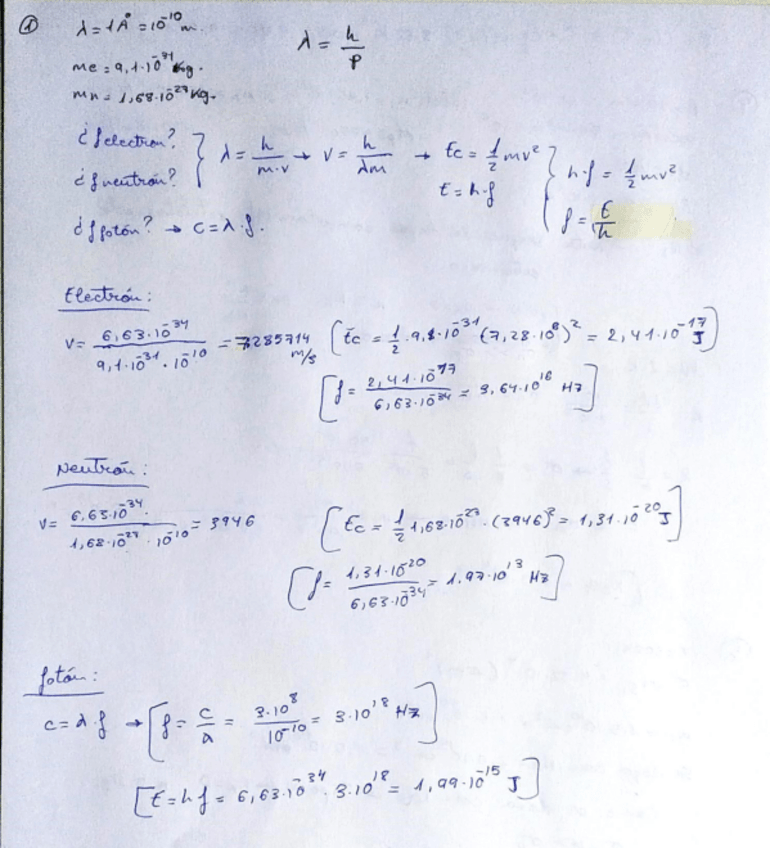 ① λ = 1 Å = 10⁻¹⁰ m.
λ = h/p
me = 9,1·10⁻³¹ Kg.
mn = 1,68·10⁻²⁷ Kg.
¿f electron?
¿f neutrón?
} λ = h/(m·v) → v = h/(λm) → Ec = 1/2 mv²
E = h·f
{ h·f = 1/2 mv²
f = E/h
¿f fotón? → c = λ·f.
Electrón:
v = (6,63·10⁻³⁴)/(9,1·10⁻³¹·10⁻¹⁰) = 7285714 m/s [Ec = 1/2·9,1·10⁻³¹(7,28·10⁶)² = 2,41·10⁻¹⁷ J]
[f = (2,41·10⁻¹⁷)/(6,63·10⁻³⁴) = 3,64·10¹⁶ Hz]
Neutrón:
v = (6,63·10⁻³⁴.)/(1,68·10⁻²⁷·10⁻¹⁰) = 3946 [Ec = 1/2 1,68·10⁻²⁷·(3946)² = 1,31·10⁻²⁰ J]
[f = (1,31·10⁻²⁰)/(6,63·10⁻³⁴) = 1,97·10¹³ Hz]
fotón:
c = λ·f → [f = c/λ = (3·10⁸)/(10⁻¹⁰) = 3·10¹⁸ Hz]
[E = h f = 6,63·10⁻³⁴·3·10¹⁸ = 1,99·10⁻¹⁵ J]